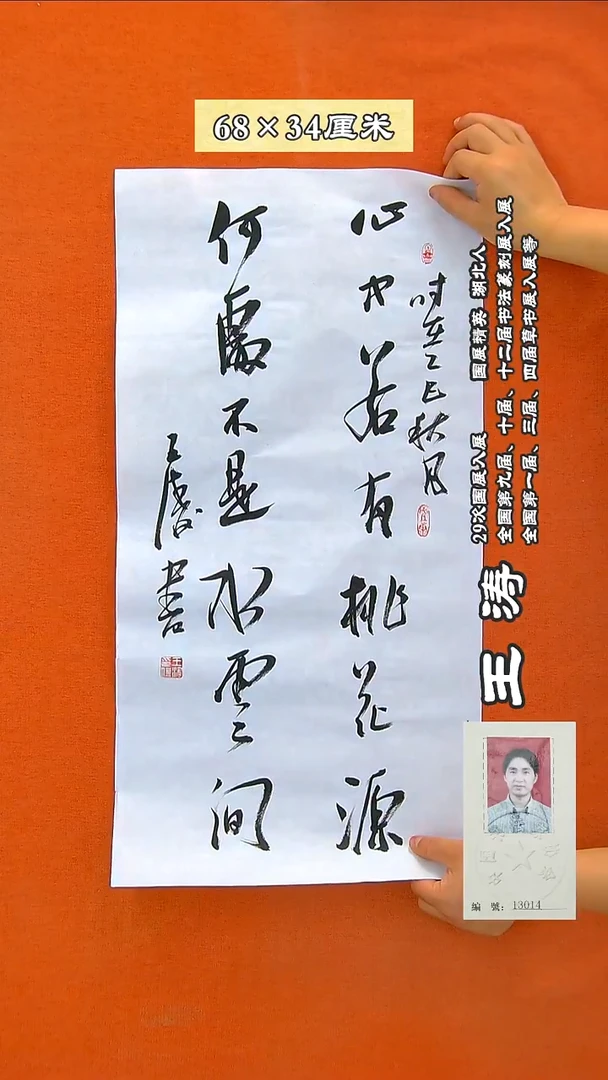 68×34厘米
心中若有桃花源
何處不是水雲間
时在乙巳秋月
王涛书
国展精英 湖北人
29次国展入展
全国第九届、十届、十二届书法篆刻展入展
全国第一届、三届、四届草书展入展等
王涛
编 號：13014